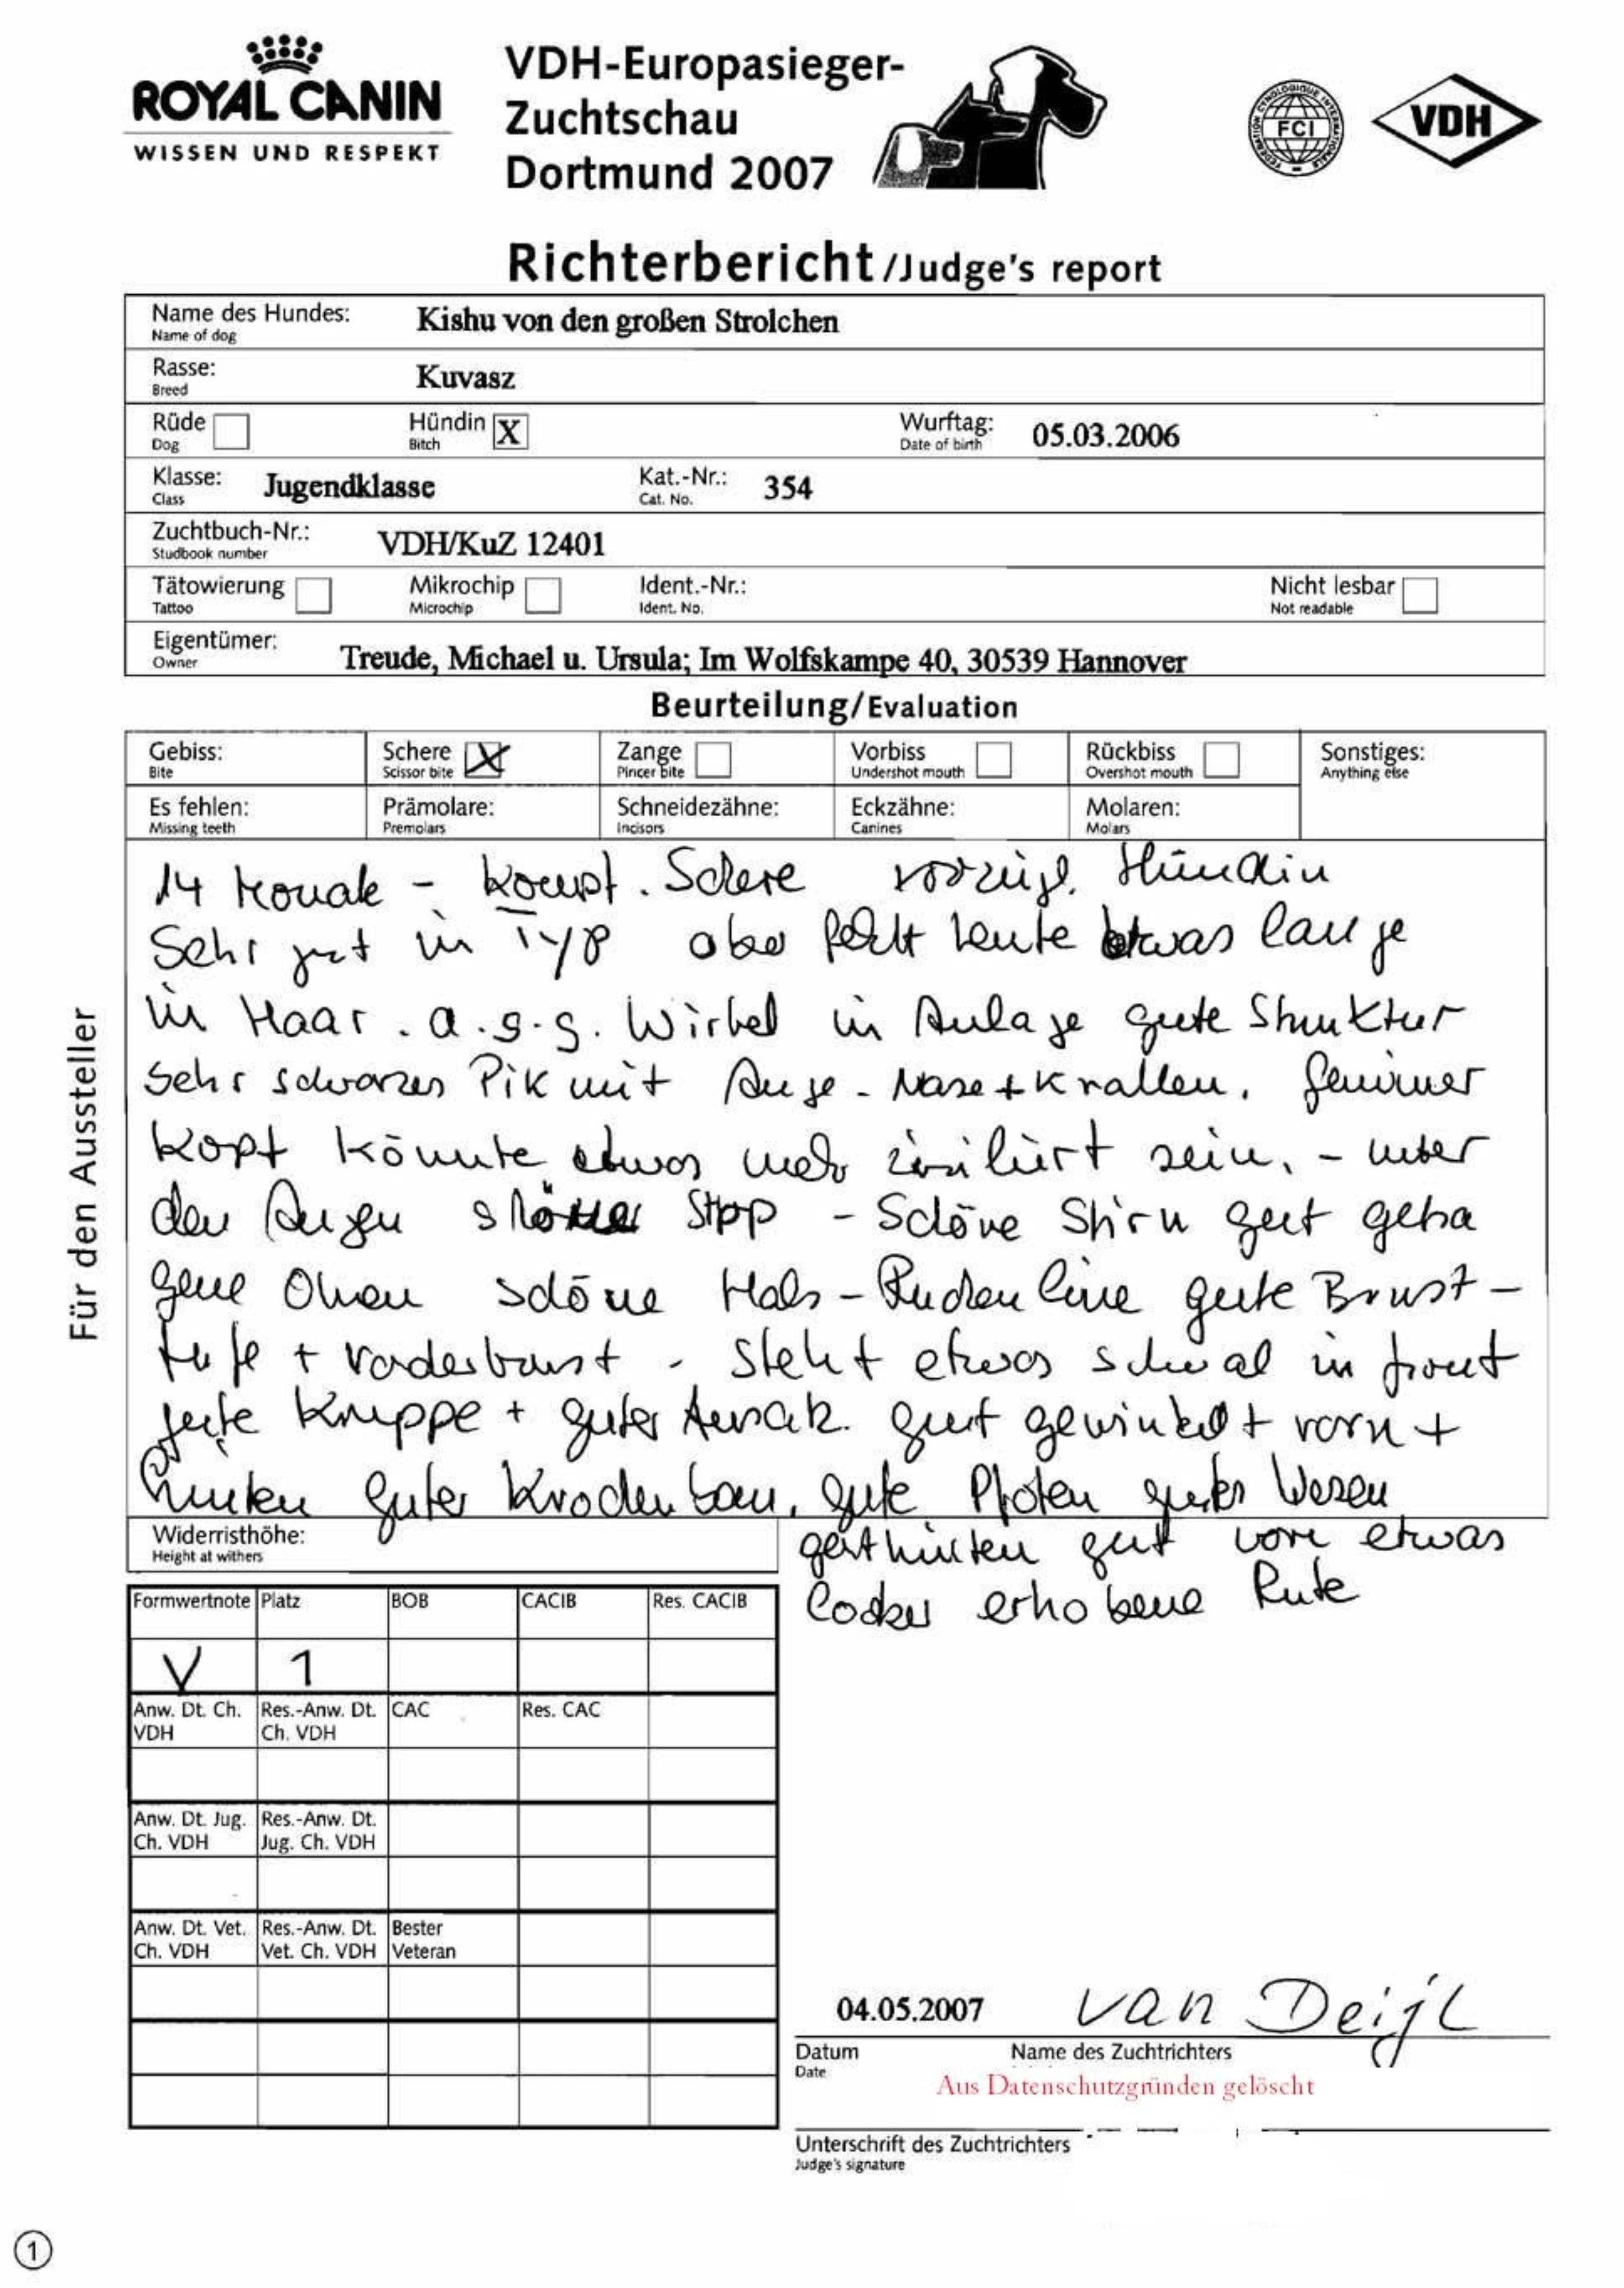 ROYAL CANIN
WISSEN UND RESPEKT
VDH-Europasieger-
Zuchtschau
Dortmund 2007
FEDERATION CYNOLOGIQUE INTERNATIONALE
FCI
VDH
Richterbericht/Judge's report
Name des Hundes: Kishu von den großen Strolchen
Name of dog
Rasse: Kuvasz
Breed
Rüde Hündin X Wurftag: 05.03.2006
Dog Bitch Date of birth
Klasse: Jugendklasse Kat.-Nr.: 354
Class Cat. No.
Zuchtbuch-Nr.: VDH/KuZ 12401
Studbook number
Tätowierung Mikrochip Ident.-Nr.: Nicht lesbar
Tattoo Microchip Ident. No. Not readable
Eigentümer: Treude, Michael u. Ursula; Im Wolfskampe 40, 30539 Hannover
Owner
Beurteilung/Evaluation
Gebiss: Schere X Zange Vorbiss Rückbiss Sonstiges:
Bite Scissor bite Pincer bite Undershot mouth Overshot mouth Anything else
Es fehlen: Prämolare: Schneidezähne: Eckzähne: Molaren:
Missing teeth Premolars Incisors Canines Molars
Für den Aussteller
14 Monate - kompt. Schere vorzügl. Hündin
Sehr gut in Typ aber fehlt heute etwas lange
in Haar. a.g.g. Wirbel in Anlage gute Struktur
sehr schwarzes Pik mit Auge - Nase + Krallen.
Kopf könnte etwas mehr sein. - unter
den Augen Stop - Schöne Stirn gut getra
gene Ohren schöne Hals - Rückenlinie gute Brust -
tiefe + Vorderbrust - steht etwas schmal in front
gute Kruppe + guter Ansatz. gut gewinkelt vorn +
hinten guter Knochenbau, gute Pfoten gutes Wesen
geht hinten gut vorn etwas
locker erhobene Rute
Widerristhöhe:
Height at withers
Formwertnote Platz BOB CACIB Res. CACIB
V 1
Anw. Dt. Ch. VDH Res.-Anw. Dt. Ch. VDH CAC Res. CAC
Anw. Dt. Jug. Ch. VDH Res.-Anw. Dt. Jug. Ch. VDH
Anw. Dt. Vet. Ch. VDH Res.-Anw. Dt. Vet. Ch. VDH Bester Veteran
04.05.2007 van Deijl
Datum Name des Zuchtrichters
Date
Aus Datenschutzgründen gelöscht
Unterschrift des Zuchtrichters
Judge's signature
1